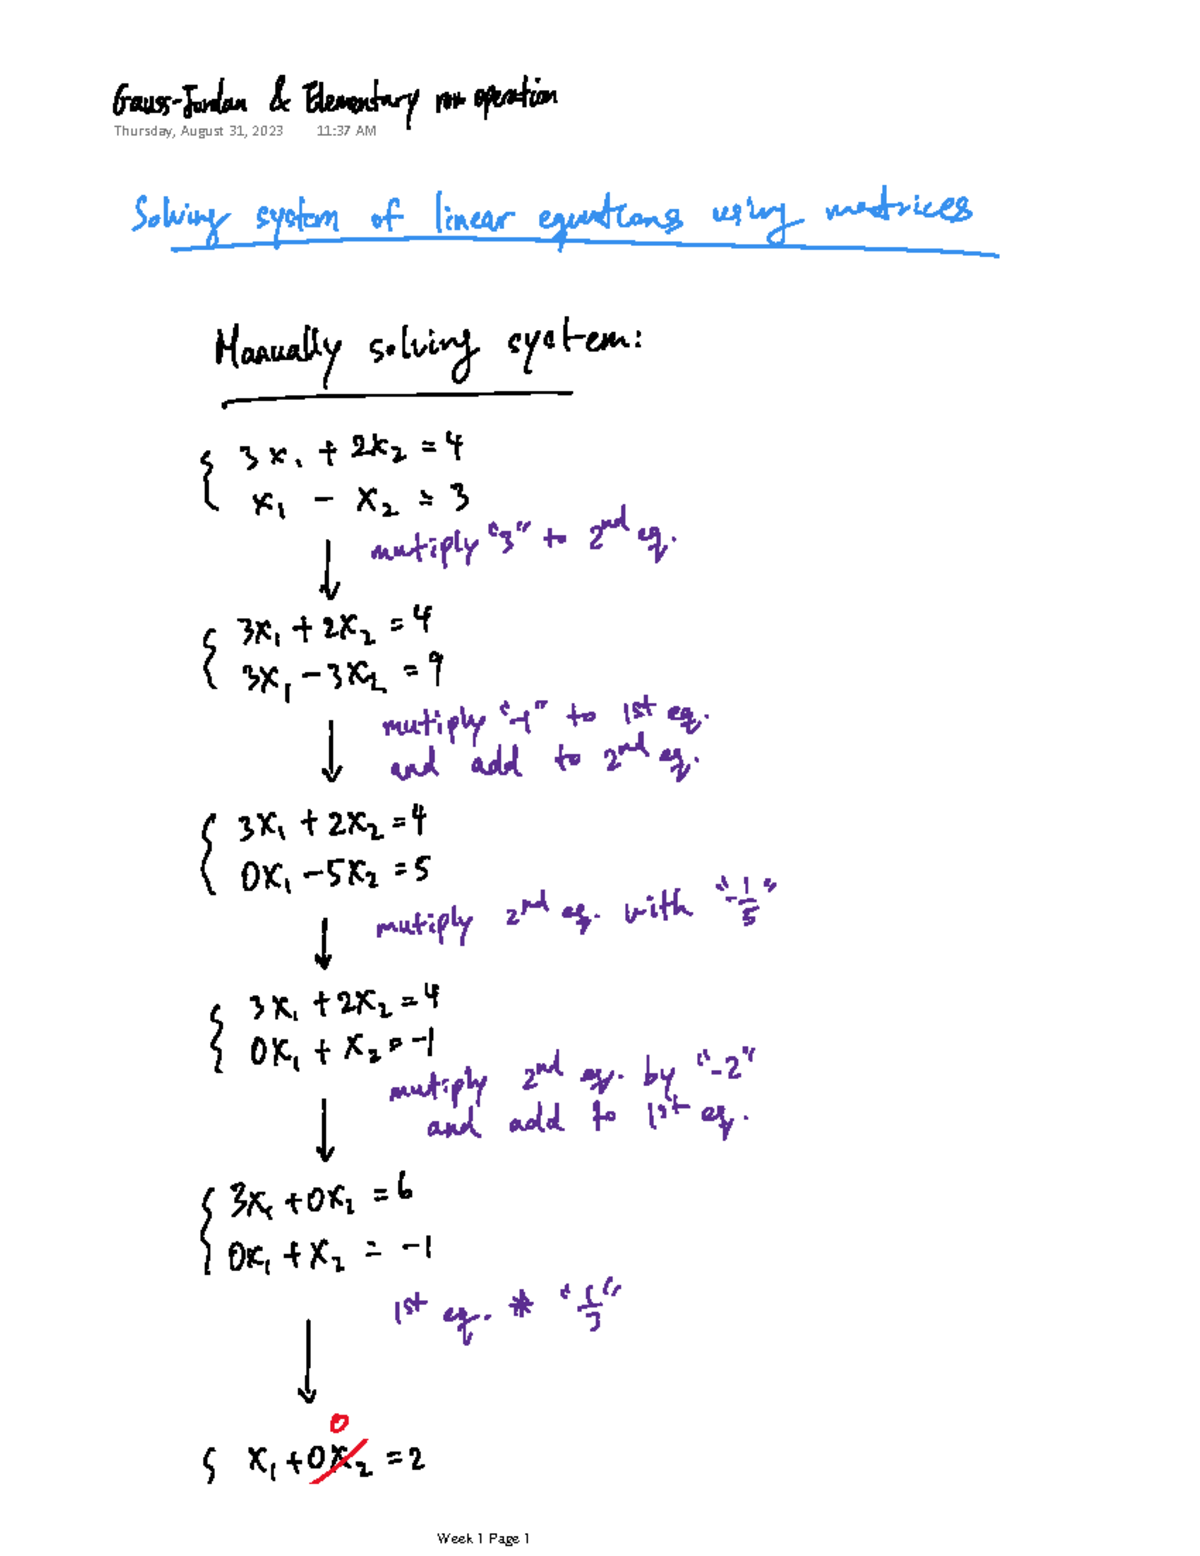 Gauss-Jordan & Elementary row operation
Thursday, August 31, 2023 11:37 AM
Solving system of linear equations using matrices
Manually solving system:
{ 3x₁ + 2x₂ = 4
x₁ - x₂ = 3
mutiply "3" to 2nd eq.
{ 3x₁ + 2x₂ = 4
3x₁ - 3x₂ = 9
mutiply "-1" to 1st eq.
and add to 2nd eq.
{ 3x₁ + 2x₂ = 4
0x₁ - 5x₂ = 5
mutiply 2nd eq. with "-1/5"
{ 3x₁ + 2x₂ = 4
0x₁ + x₂ = -1
mutiply 2nd eq. by "-2"
and add to 1st eq.
{ 3x₁ + 0x₂ = 6
0x₁ + x₂ = -1
1st eq. * "1/3"
0
{ x₁ + 0x₂ = 2
Week 1 Page 1